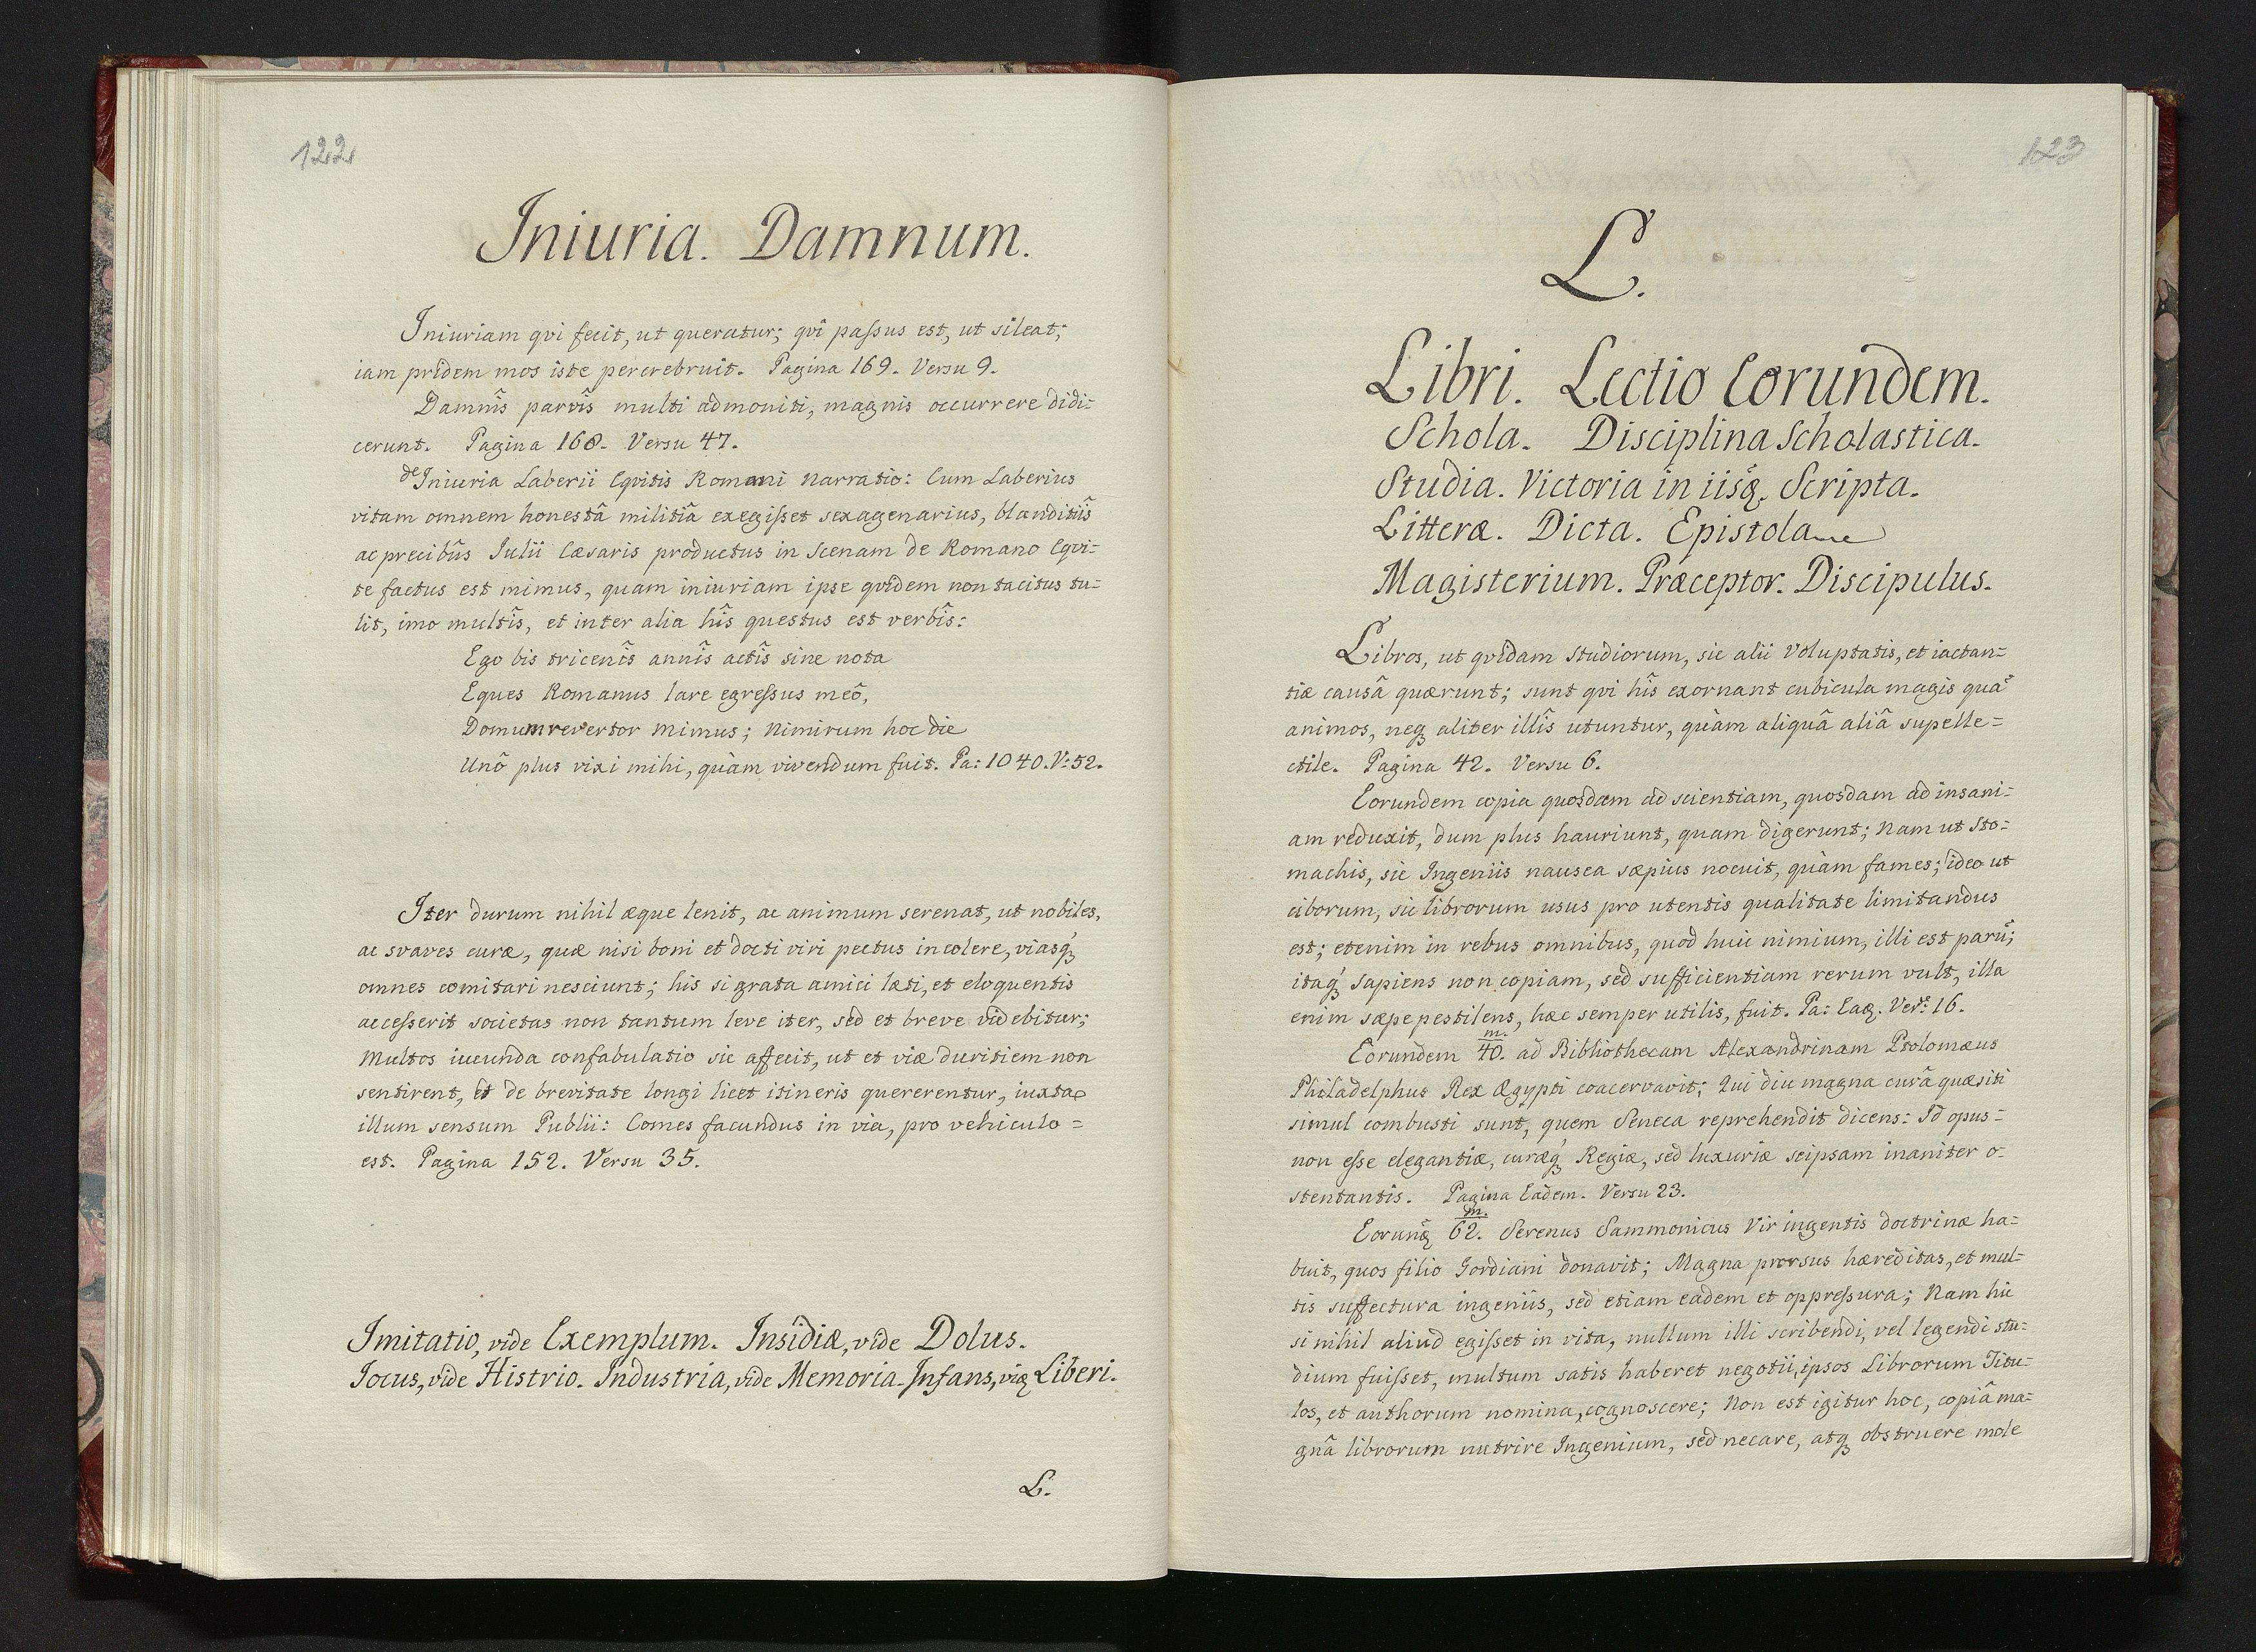 122
Iniuria. Damnum.
Iniuriam qvi fecit, ut queratur; qvi paſsus est, ut sileat;
iam pridem mos iste percrebruit. Pagina 169. Versu 9.
Damnîs parvîs multi admoniti, magnis occurrere didi=
cerunt. Pagina 168. Versu 47.
de Iniuria Laberii Eqvitis Romani Narratio: Cum Laberius
vitam omnem honestâ militiâ exegiſset sexagenarius, blanditiîs
ac precibûs Iulii Cæsaris productus in Scenam de Romano Eqvi=
te factus est mimus, quam iniuriam ipse qvidem non tacitus tu=
lit, imo multîs, et inter alia hîs questus est verbîs:
Ego bis tricenîs annîs actîs sine nota
Eques Romanus lare egreſsus meô,
Domum revertor Mimus; Nimirum hoc die
Unô plus vixi mihi, quàm vivendum fuit. Pa: 1040. V: 52.
Iter durum nihil æque lenit, ac animum serenat, ut nobiles,
ac svaves curæ, quæ nisi boni et docti viri pectus incolere, viasqꝫ
omnes comitari nesciunt; his si grata amici læti, et eloquentis
acceſserit societas non tantum leve iter, sed et breve videbitur;
Multos iucunda confabulatio sic affecit, ut et viæ duritiem non
sentirent, et de brevitate longi licet itineris quererentur, iuxta
illum sensum Publii: Comes facundus in via, pro vehiculo =
est. Pagina 152. Versu 35.
Imitatio, vide Exemplum. Insidiæ, vide Dolus.
Iocus, vide Histrio. Industria, vide Memoria. Infans, viꝫ Liberi.
L.
123
L.
Libri. Lectio Eorundem.
Schola. Disciplina Scholastica.
Studia. Victoria in iisꝫ. Scripta.
Litteræ. Dicta. Epistolæ
Magisterium. Præceptor. Discipulus.
Libros, ut qvidam studiorum, sic alii Voluptatis, et iactan=
tiæ causâ quærunt; sunt qvi hîs exornant cubicula magis quã
animos, neqꝫ aliter illîs utuntur, quàm aliquâ aliâ supelle=
ctile. Pagina 42. Versu 6.
Eorundem copia quosdam ad scientiam, quosdam ad insani=
am reduxit, dum plus hauriunt, quam digerunt; Nam ut Sto=
machis, sic Ingeniis nausea sæpius nocuit, quàm fames; ideo ut
ciborum, sic librorum usus pro utentis qualitate limitandus
est; etenim in rebus omnibus, quod huic nimium, illi est parũ;
itaqꝫ sapiens non copiam, sed sufficientiam rerum vult, illa
enim sæpe pestilens, hæc semper utilis, fuit. Pa: Eaꝫ. Vers: 16.
Eorundem 40. m. ad Bibliothecam Alexandrinam Ptolomæus
Philadelphus Rex Ægypti coacervavit; Qui diu magna curâ quæsiti
simul combusti sunt, quem Seneca reprehendit dicens: Id opus =
non eſse elegantiæ, curæqꝫ Regiæ, sed luxuriæ seipsam inaniter o=
stentantis. Pagina Eadem. Versu 23.
Eorunꝫ 62. m. Serenus Sammonicus Vir ingentis doctrinæ ha=
buit, quos filio Gordiani donavit; Magna prorsus hæreditas, et mul=
tis suffectura ingeniis, sed etiam eadem et oppreſsura; Nam hic
si nihil aliud egiſset in vita, nullum illi scribendi, vel legendi stu=
dium fuiſset, multum satis haberet negotii, ipsos Librorum Titu=
los, et authorum nomina, cognoscere; Non est igitur hoc, copiâ ma=
gnâ librorum nutrire Ingenium, sed necare, atqꝫ obstruere mole